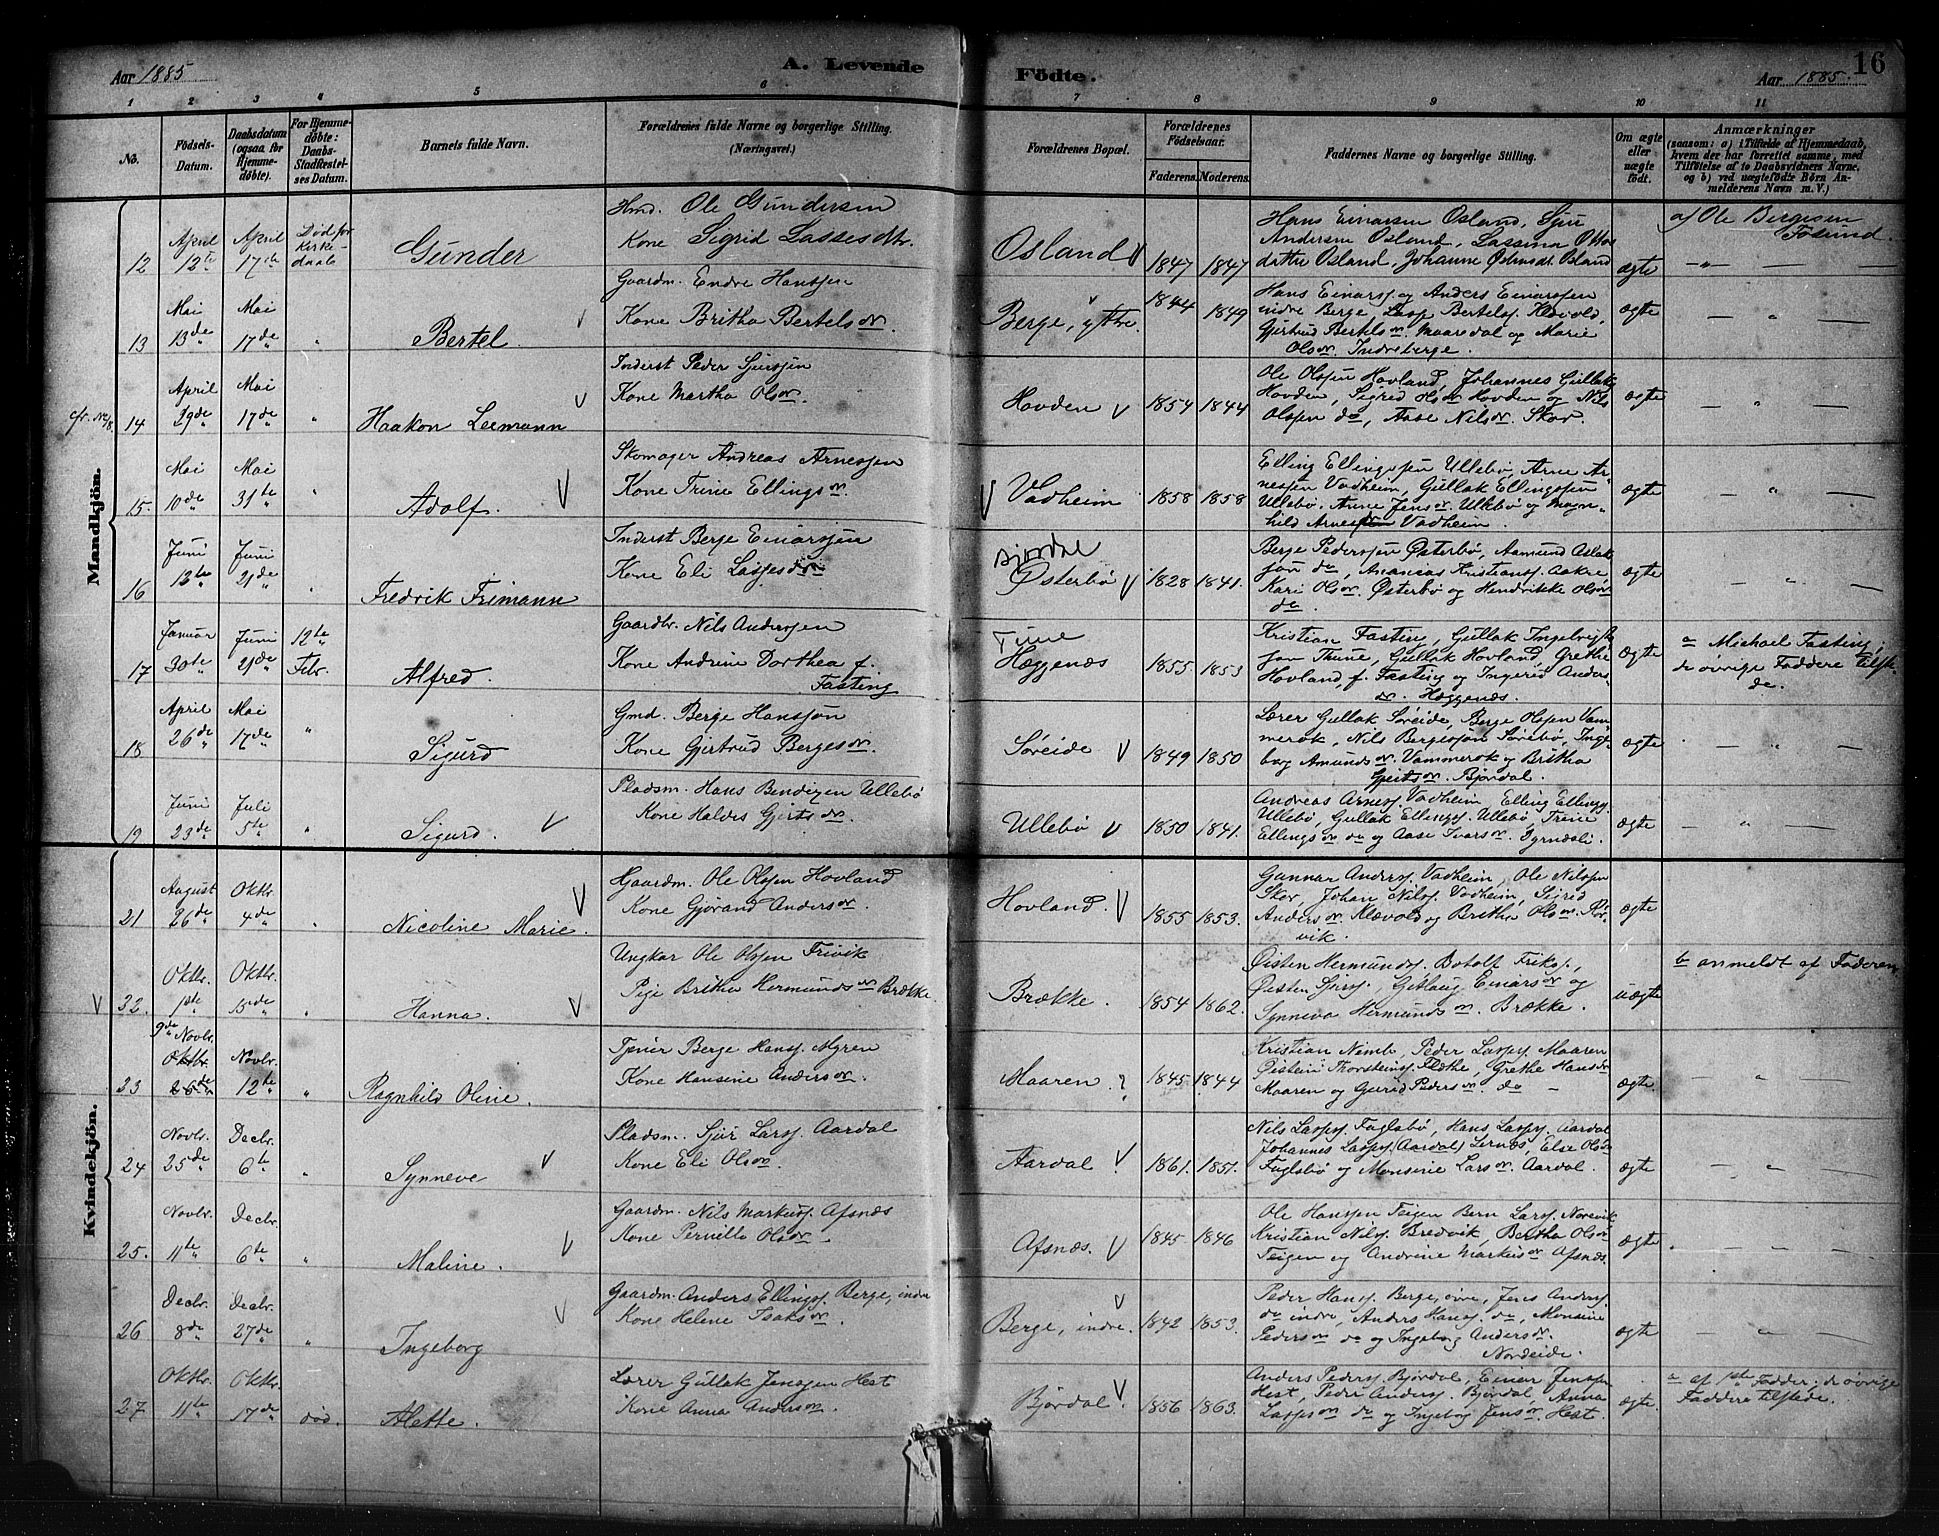 Aar 1885
A. Levende
Födte.
Aar 1885.
16
1 2 3 4 5 6 7 8 9 10 11
No.
Födsels-
Datum.
Daabsdatum
(ogsaa for
Hjemme-
döbte).
For Hjemme-
döbte:
Daabs-
Stadfæstel-
ses Datum.
Barnets fulde Navn.
Forældrenes fulde Navne og borgerlige Stilling.
(Næringsvei.)
Forældrenes Bopæl.
Forældrenes
Födselsaar.
Faderens. Moderens.
Faddernes Navne og borgerlige Stilling.
Om ægte
eller
uægte
födt.
Anmærkninger
(saasom: a) i Tilfælde af Hjemmedaab,
hvem der har forrettet samme, med
Tilföielse af to Daabsvidners Navne,
og b) ved uægtefödte Börn An-
melderens Navn m. V.)
Mandkjön.
12
April
12te
April
17de
Död for
Kirke-
daab
Gunder
Hmd. Ole Gundersen
Kone Sigrid Lassesdtr.
Osland
1847 1847
Hans Einarsen Osland, Sjur
Andersen Osland, Lassina Ottos
datter Osland, Johanne Østensdt. Osland
ægte
af Ole Bergesen
Tosund.
13
Mai
13de
Mai
17de
Bertel
Gaardm. Endre Hanssen
Kone Britha Bertelsdr.
Berge, ytre
1844 1849
Hans Einarss. og Anders Einarssen
indre Berge, Lasse Bertels. Klævold,
Gjertrud Bertelsdr. Maaredal og Marie
Olsdr. Indreberge.
ægte
cfr. No. 18.
14
April
29de
Mai
17de
Haakon Leemann
Inderst Peder Sjurssen
Kone Martha Olsdr.
Hovden
1854 1844
Ole Olssen Hovland, Johannes Gullaks.
Hovden, Sigrid Olsdr Hovden og Nils
Olssen do, Aase Nilsdr. Skor.
ægte
15.
Mai
10de
Mai
31te
Adolf.
Skomager Andreas Arnessen
Kone Trine Ellingsdr.
Vadheim
1858 1858
Elling Ellingssen Ullebö, Arne Ar-
nessen Vadheim, Gullak Ellingssen
Ullebö, Anne Jensdr. Ullebö og Magn-
hild Arnesdr Vadheim.
ægte
16
Juni
13te
Juni
21de
Fredrik Frimann
Inderst Berge Einarssen
Kone Eli Lassesdr
Bjordal
Østerbö
1828 1841.
Berge Pederssen Østerbö, Aamund Aslak
sen do, Andreas Kristianss. Aakre
Kari Olsdr. Østerbö og Hendrikke Olsdr
do.
ægte
17
Januar
30te
Juni
21de
12te
Febr.
Alfred.
Gaardbr. Nils Anderssen
Kone Andrine Dorthea f.
Fasting
Tune
Hæggenæs
1855 1853
Kristian Fasting, Gullak Ingebrigt-
sen Thune, Gullak Hovland, Grethe
Hovland, f. Fasting og Ingerid Anders-
dr. Hæggenæs.
ægte
a Michael Fasting;
de övrige Faddere tilste-
de.
18
April
26de
Mai
17de
Sigurd
Gmd. Berge Hanssön
Kone Gjertrud Bergesdr.
Søreide
1849 1850
Lærer Gullak Søreide, Berge Olssen Vam-
merok, Nils Bergessön Sørebö, Inge-
borg Amundsdr. Vammerok og Britha
Gjertsdr. Bjordal.
ægte
19
Juni
23de
Juli
5te
Sigurd.
Pladsm. Hans Bendixen Ullebö
Kone Haldis Gjertsdr.
Ullebö
1850 1841.
Andreas Arness. Vadheim, Elling Ellingss.
Ullebö, Gullak Ellingss. Ullebö, Trine
Ellingsdr. do og Aase Ivarsdr. Dyrndali
ægte
Kvindekjön.
21
August
26de
Oktbr.
4de
Nicoline Marie.
Gaardm. Ole Olssen Hovland
Kone Gjørand Andersdr.
Hovland.
1855 1853.
Gunnar Anderss. Vadheim, Ole Nilssen
Skor, Johan Nilss. Vadheim, Sigrid
Andersdr. Klævold og Britha Olsdr. Ris-
vik.
ægte
32.
Oktbr.
1ste
Oktbr.
15de
Hanna.
Ungkar Ole Olssen Frivik
Pige Britha Hermundsdr Brække
Brække.
1854 1862.
Østen Hermundss. Botolf Erikss.,
Østen Sjurss., Gjtlaug Einarsdr og
Synneva Hermundsdr. Brække.
uægte
b anmeldt af Faderen
23
9de Novbr.
Oktbr.
26de
Novbr.
12te
Ragnhild Oline.
Tjener Berge Hanss. Myren
Kone Hansine Andersdr.
Maaren.
1845. 1844
Kristian Nimb, Peder Larss. Maaren
Østein Thorsteinss. Flæthe, Grethe Hansdr
Maaren og Gurid Pedersdr. do
ægte.
24
Novbr.
25de
Decbr.
6te
Synneve
Pladsm. Sjur Larss. Aardal
Kone Eli Olsdr.
Aardal
1861. 1851.
Nils Larss. Fuglebö, Hans Larss. Aardal
Johannes Larss. (Aardal) Lernæs, Else Olsdr
Fuglebö og Monsine Larsdr. Aardal.
ægte
25.
Novbr.
11te
Decbr.
6te
Maline.
Gaardm. Nils Markuss. Afsnæs
Kone Pernille Olsdr.
Afsnæs.
1845 1846
Ole Hanssen Teigen, Bern Larss. Norevik
Kristian Nilss. Bredvik, Bertha Olsdr
Teigen og Andrine Markusdr Afsnæs.
ægte
26
Decbr.
8de
Decbr.
27de
Ingeborg
Gaardm. Anders Ellingss. Berge, indre
Kone Helene Isaksdr.
Berge, indre.
1842 1853.
Peder Hanss. Berge, övre, Jens Anderss.
do indre, Anders Hanss. do, Monsine
Pedersdr. do og Ingeborg Andersdr.
Nordeide.
ægte
27
Oktbr.
11te
Oktbr.
17de
död.
Alette.
Lærer Gullak Jenssen Hest
Kone Anna Andersdr.
Bjordal
1856 1863.
Anders Peders. Bjordal, Einar Jenssen
Hest, Peder Anderss. Bjordal, Anna
Lassesdr do og Ingeborg Jensdr. Hest.
ægte.
a af 1ste Fadder; de övrige
Faddere tilstede.